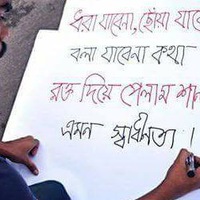 ধরা যাবেনা, ছোঁয়া যাবে
বলা যাবেনা কথা
রক্ত দিয়ে পেলাম শা
এমন স্বাধীনতা ।